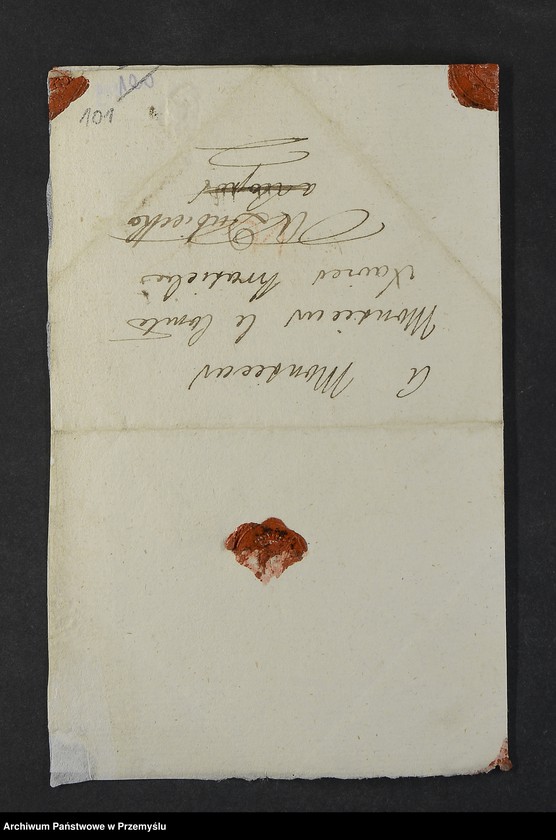 100
101
A Monsieur
Monsieur le Comte
Xavier Krasicki
a
Archiwum Państwowe w Przemyślu